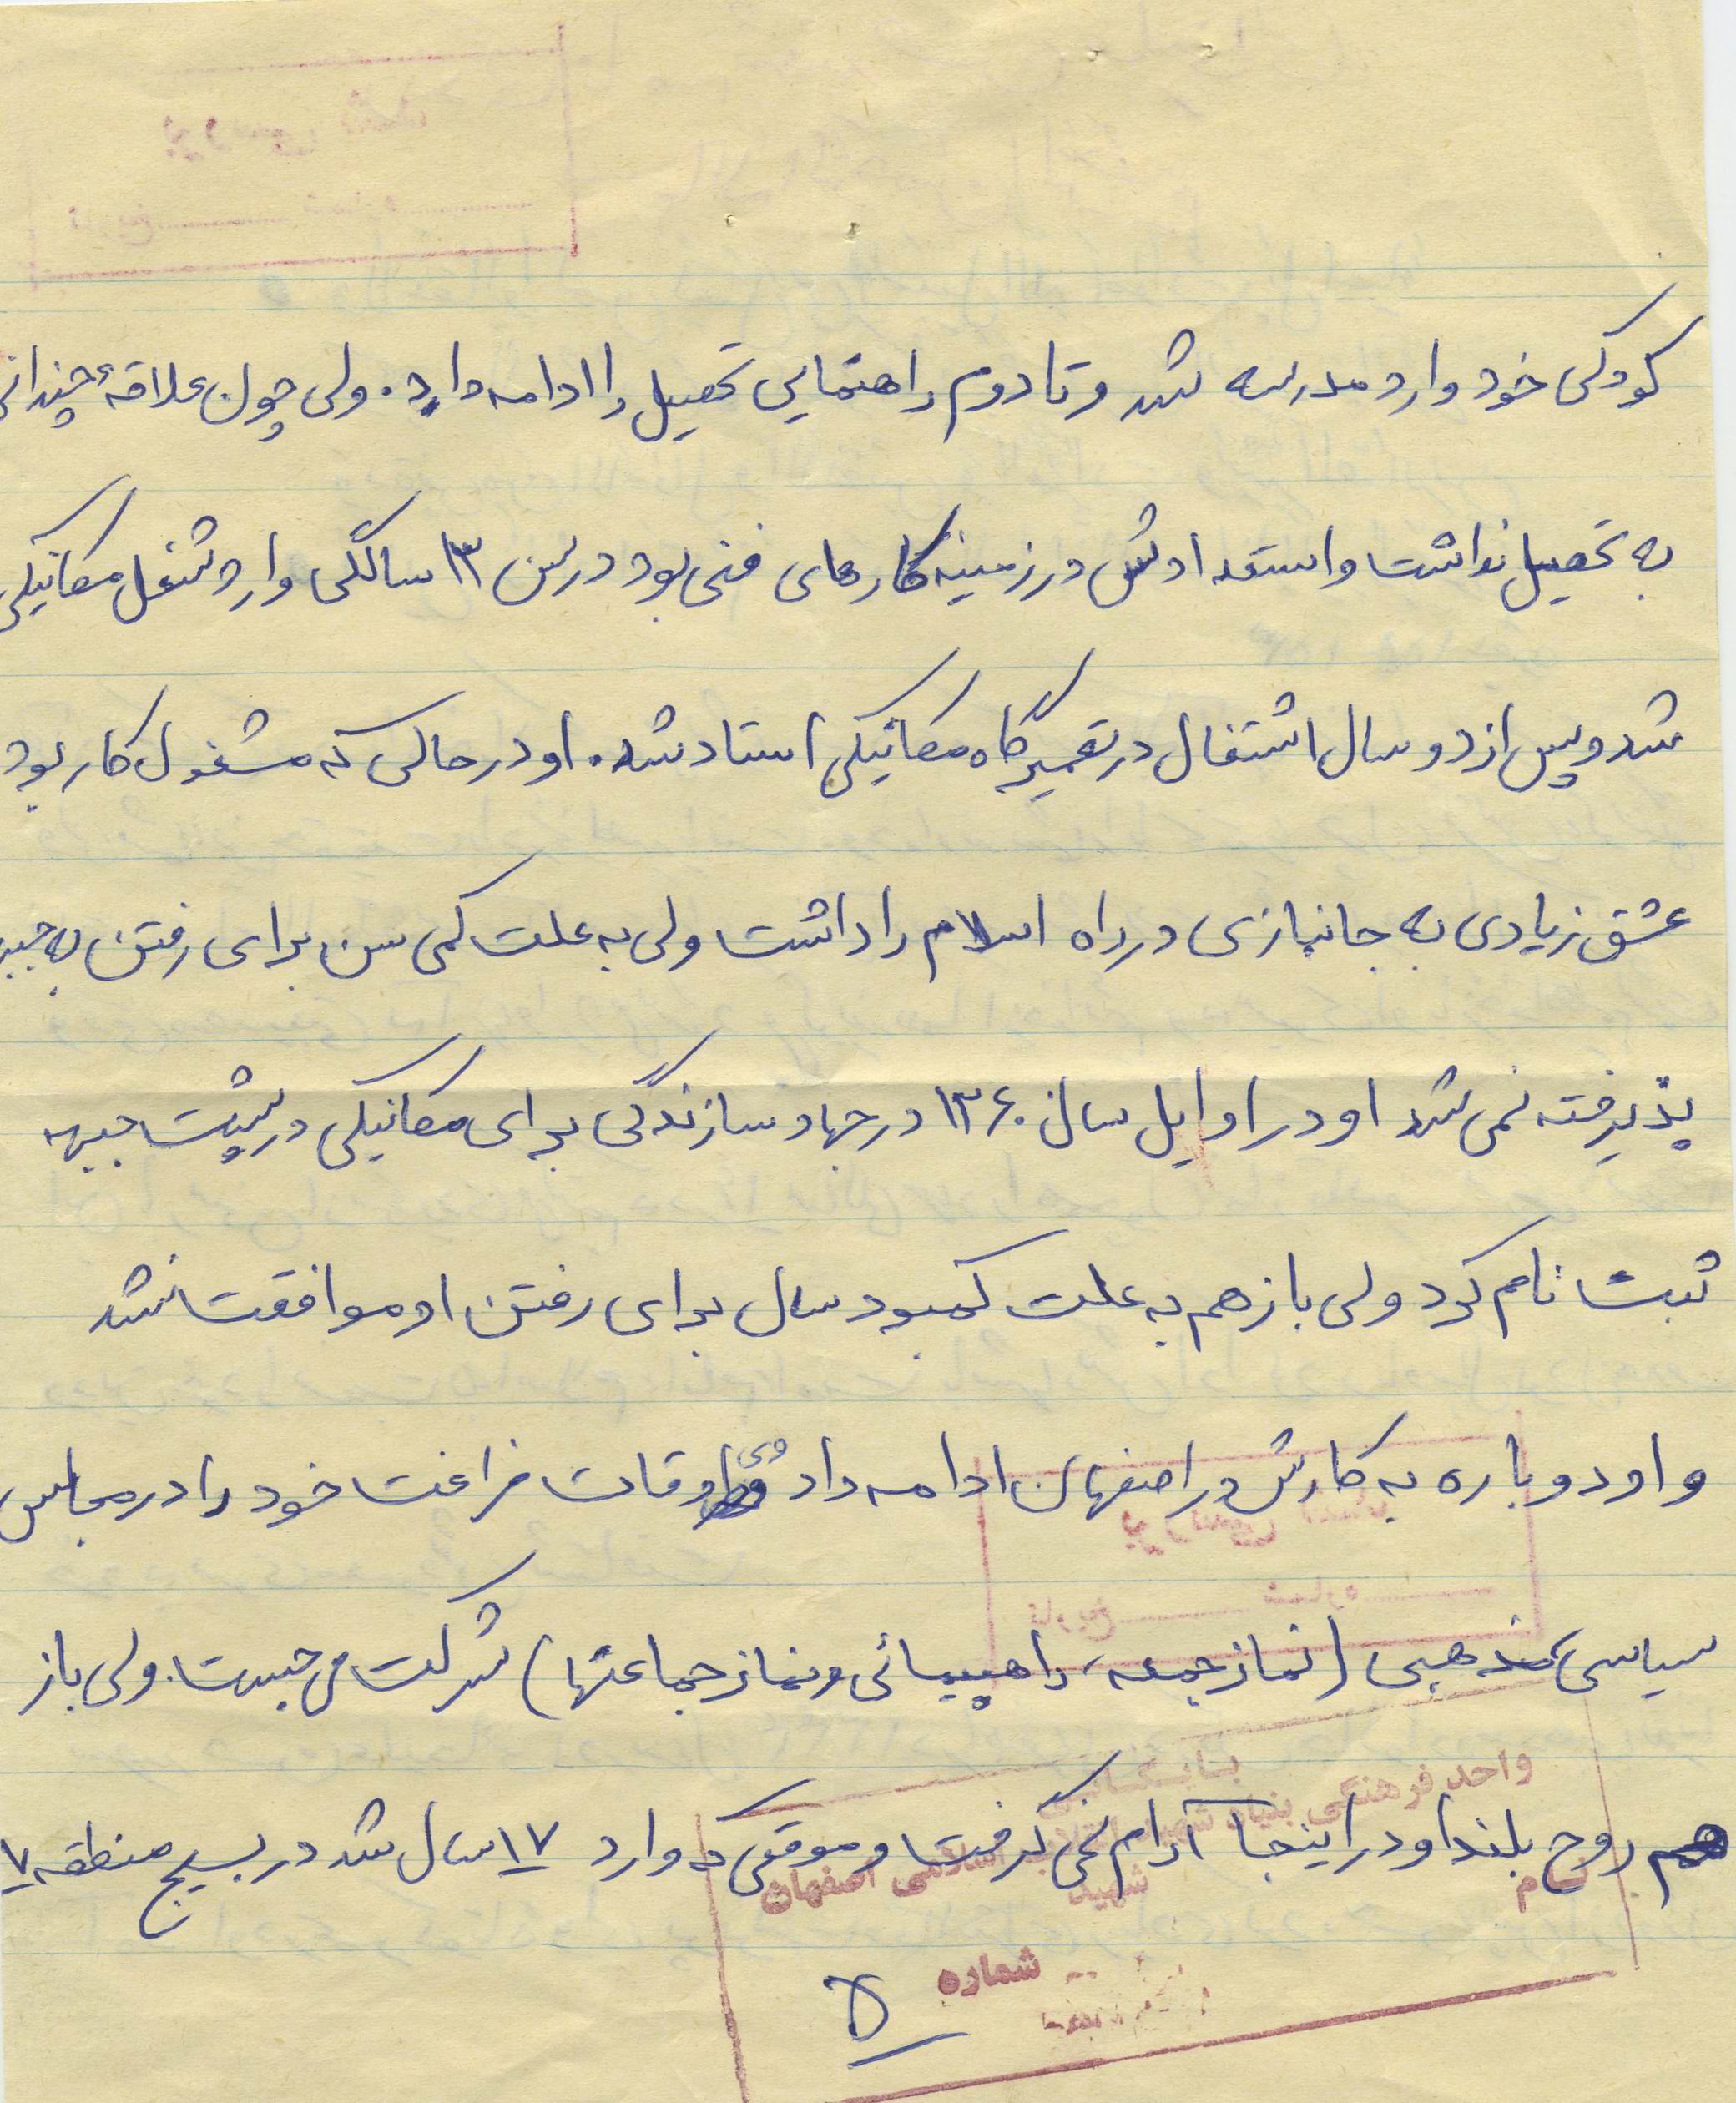 کودکی خود وارد مدرسه شد و تا دوم راهنمایی تحصیل را ادامه داد. ولی چون علاقهٔ چندانی
به تحصیل نداشت و استعدادش در زمینه کارهای فنی بود در سن ۱۳ سالگی وارد شغل مکانیکی
شد و پس از دو سال اشتغال در تعمیرگاه مکانیکی استاد شد. او در حالی که مشغول کار بود
عشق زیادی به جانبازی در راه اسلام را داشت ولی به علت کمی سن برای رفتن به جبهه
پذیرفته نمی شد او در اوایل سال ۱۳۶۰ در جهاد سازندگی برای مکانیکی در پشت جبهه
ثبت نام کرد ولی باز هم به علت کمبود سال برای رفتن او موافقت نشد
و او دوباره به کارش در اصفهان ادامه داد وی اوقات فراغت خود را در مجالس
سیاسی مذهبی (نماز جمعه، راهپیمائی و نماز جماعتها) شرکت می جست. ولی باز
هم روح بلند او در اینجا آرام نمی گرفت و موقعی که وارد ۱۷ سال شد در بسیج منطقه ۷
بایگانی
واحد فرهنگی بنیاد شهید انقلاب اسلامی اصفهان
نام
شهید
شماره
۵